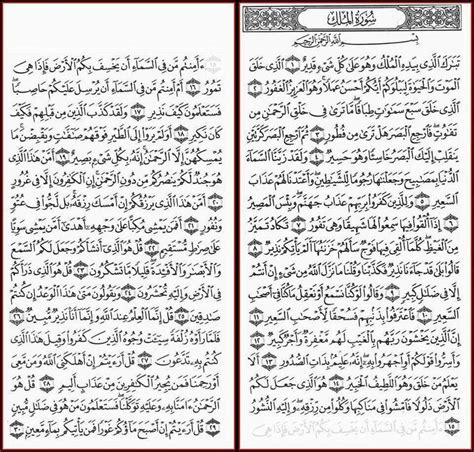 سُورَةُ المُلْكِ
بِسْمِ اللَّهِ الرَّحْمَٰنِ الرَّحِيمِ
تَبَٰرَكَ الَّذِي بِيَدِهِ الْمُلْكُ وَهُوَ عَلَىٰ كُلِّ شَيْءٍ قَدِيرٌ ١ الَّذِي خَلَقَ
الْمَوْتَ وَالْحَيَوٰةَ لِيَبْلُوَكُمْ أَيُّكُمْ أَحْسَنُ عَمَلًا وَهُوَ الْعَزِيزُ الْغَفُورُ ٢
الَّذِي خَلَقَ سَبْعَ سَمَٰوَٰتٍ طِبَاقًا مَّا تَرَىٰ فِي خَلْقِ الرَّحْمَٰنِ مِن
تَفَٰوُتٍ فَارْجِعِ الْبَصَرَ هَلْ تَرَىٰ مِن فُطُورٍ ٣ ثُمَّ ارْجِعِ الْبَصَرَ كَرَّتَيْنِ
يَنقَلِبْ إِلَيْكَ الْبَصَرُ خَاسِئًا وَهُوَ حَسِيرٌ ٤ وَلَقَدْ زَيَّنَّا السَّمَاءَ
الدُّنْيَا بِمَصَٰبِيحَ وَجَعَلْنَٰهَا رُجُومًا لِّلشَّيَٰطِينِ وَأَعْتَدْنَا لَهُمْ عَذَابَ
السَّعِيرِ ٥ وَلِلَّذِينَ كَفَرُوا بِرَبِّهِمْ عَذَابُ جَهَنَّمَ وَبِئْسَ الْمَصِيرُ
٦ إِذَا أُلْقُوا فِيهَا سَمِعُوا لَهَا شَهِيقًا وَهِيَ تَفُورُ ٧ تَكَادُ تَمَيَّزُ
مِنَ الْغَيْظِ كُلَّمَا أُلْقِيَ فِيهَا فَوْجٌ سَأَلَهُمْ خَزَنَتُهَا أَلَمْ يَأْتِكُمْ نَذِيرٌ ٨
قَالُوا بَلَىٰ قَدْ جَاءَنَا نَذِيرٌ فَكَذَّبْنَا وَقُلْنَا مَا نَزَّلَ اللَّهُ مِن شَيْءٍ إِنْ أَنتُمْ
إِلَّا فِي ضَلَٰلٍ كَبِيرٍ ٩ وَقَالُوا لَوْ كُنَّا نَسْمَعُ أَوْ نَعْقِلُ مَا كُنَّا فِي أَصْحَٰبِ
السَّعِيرِ ١٠ فَاعْتَرَفُوا بِذَنبِهِمْ فَسُحْقًا لِّأَصْحَٰبِ السَّعِيرِ ١١
إِنَّ الَّذِينَ يَخْشَوْنَ رَبَّهُم بِالْغَيْبِ لَهُم مَّغْفِرَةٌ وَأَجْرٌ كَبِيرٌ ١٢
وَأَسِرُّوا قَوْلَكُمْ أَوِ اجْهَرُوا بِهِ إِنَّهُ عَلِيمٌ بِذَاتِ الصُّدُورِ ١٣ أَلَا
يَعْلَمُ مَنْ خَلَقَ وَهُوَ اللَّطِيفُ الْخَبِيرُ ١٤ هُوَ الَّذِي جَعَلَ لَكُمُ
الْأَرْضَ ذَلُولًا فَامْشُوا فِي مَنَاكِبِهَا وَكُلُوا مِن رِّزْقِهِ وَإِلَيْهِ النُّشُورُ
١٥ ءَأَمِنتُم مَّن فِي السَّمَاءِ أَن يَخْسِفَ بِكُمُ الْأَرْضَ فَإِذَا هِيَ
١٥ ءَأَمِنتُم مَّن فِي السَّمَاءِ أَن يَخْسِفَ بِكُمُ الْأَرْضَ فَإِذَا هِيَ
تَمُورُ ١٦ أَمْ أَمِنتُم مَّن فِي السَّمَاءِ أَن يُرْسِلَ عَلَيْكُمْ حَاصِبًا
فَسَتَعْلَمُونَ كَيْفَ نَذِيرِ ١٧ وَلَقَدْ كَذَّبَ الَّذِينَ مِن قَبْلِهِمْ فَكَيْفَ
كَانَ نَكِيرِ ١٨ أَوَلَمْ يَرَوْا إِلَى الطَّيْرِ فَوْقَهُمْ صَٰفَّٰتٍ وَيَقْبِضْنَ مَا
يُمْسِكُهُنَّ إِلَّا الرَّحْمَٰنُ إِنَّهُ بِكُلِّ شَيْءٍ بَصِيرٌ ١٩ أَمَّنْ هَٰذَا الَّذِي
هُوَ جُندٌ لَّكُمْ يَنصُرُكُم مِّن دُونِ الرَّحْمَٰنِ إِنِ الْكَٰفِرُونَ إِلَّا فِي غُرُورٍ
٢٠ أَمَّنْ هَٰذَا الَّذِي يَرْزُقُكُمْ إِنْ أَمْسَكَ رِزْقَهُ بَل لَّجُّوا فِي عُتُوٍّ
وَنُفُورٍ ٢١ أَفَمَن يَمْشِي مُكِبًّا عَلَىٰ وَجْهِهِ أَهْدَىٰ أَمَّن يَمْشِي سَوِيًّا
عَلَىٰ صِرَٰطٍ مُّسْتَقِيمٍ ٢٢ قُلْ هُوَ الَّذِي أَنشَأَكُمْ وَجَعَلَ لَكُمُ السَّمْعَ
وَالْأَبْصَٰرَ وَالْأَفْـِٔدَةَ قَلِيلًا مَّا تَشْكُرُونَ ٢٣ قُلْ هُوَ الَّذِي ذَرَأَكُمْ
فِي الْأَرْضِ وَإِلَيْهِ تُحْشَرُونَ ٢٤ وَيَقُولُونَ مَتَىٰ هَٰذَا الْوَعْدُ إِن كُنتُمْ
صَٰدِقِينَ ٢٥ قُلْ إِنَّمَا الْعِلْمُ عِندَ اللَّهِ وَإِنَّمَا أَنَا نَذِيرٌ مُّبِينٌ ٢٦
فَلَمَّا رَأَوْهُ زُلْفَةً سِيـَٔتْ وُجُوهُ الَّذِينَ كَفَرُوا وَقِيلَ هَٰذَا الَّذِي
كُنتُم بِهِ تَدَّعُونَ ٢٧ قُلْ أَرَءَيْتُمْ إِنْ أَهْلَكَنِيَ اللَّهُ وَمَن مَّعِيَ
أَوْ رَحِمَنَا فَمَن يُجِيرُ الْكَٰفِرِينَ مِنْ عَذَابٍ أَلِيمٍ ٢٨ قُلْ هُوَ
الرَّحْمَٰنُ ءَامَنَّا بِهِ وَعَلَيْهِ تَوَكَّلْنَا فَسَتَعْلَمُونَ مَنْ هُوَ فِي ضَلَٰلٍ مُّبِينٍ
٢٩ قُلْ أَرَءَيْتُمْ إِنْ أَصْبَحَ مَاؤُكُمْ غَوْرًا فَمَن يَأْتِيكُم بِمَاءٍ مَّعِينٍ ٣٠